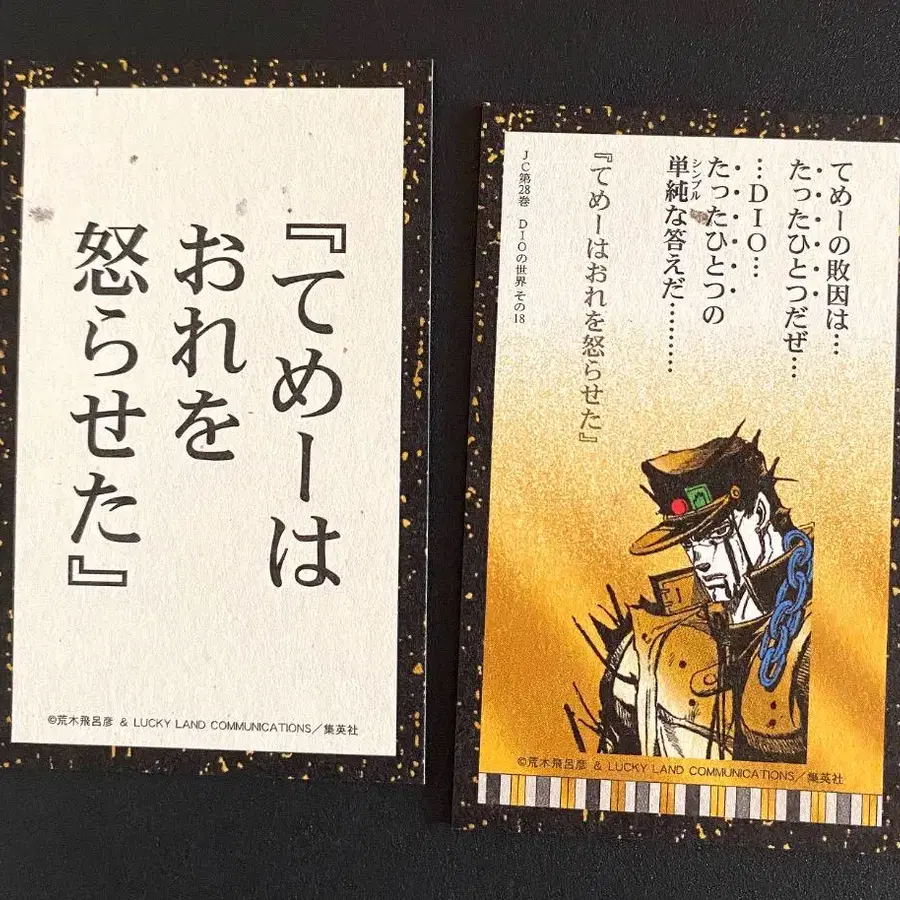 『てめーは
おれを
怒らせた』
©荒木飛呂彦 & LUCKY LAND COMMUNICATIONS／集英社
てめーの敗因は…
たったひとつだぜ…
…DIO…
たったひとつの
シンプル
単純な答えだ………
『てめーはおれを怒らせた』
JC第28巻 DIOの世界 その18
©荒木飛呂彦 & LUCKY LAND COMMUNICATIONS／集英社